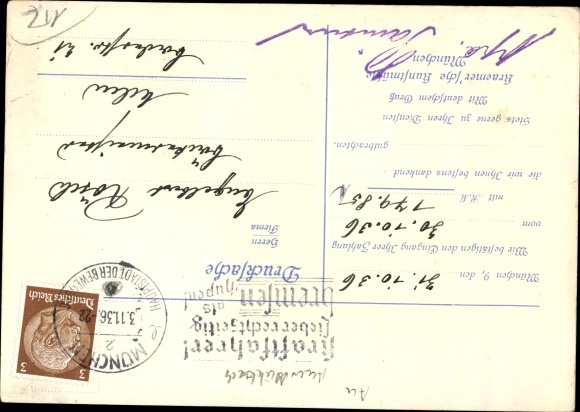 Kraftfahrer!
lieber rechtzeitig
bremsen
als
hupen!
MÜNCHEN
2
3.11.36.
HAUPTSTADT DER BEWEG
Deutsches Reich
3
3
Drucksache
Herrn
Firma
Engelbert Rösch
Aalen
München 9, den 31.10.36
Wir bestätigen den Eingang Ihrer Zahlung
vom 30.10.36
mit RM 179.85
die wir Ihnen bestens dankend
gutbrachten.
Stets gerne zu Ihren Diensten
Mit deutschem Gruß
Kraemer'sche Kunstmühle
München
112